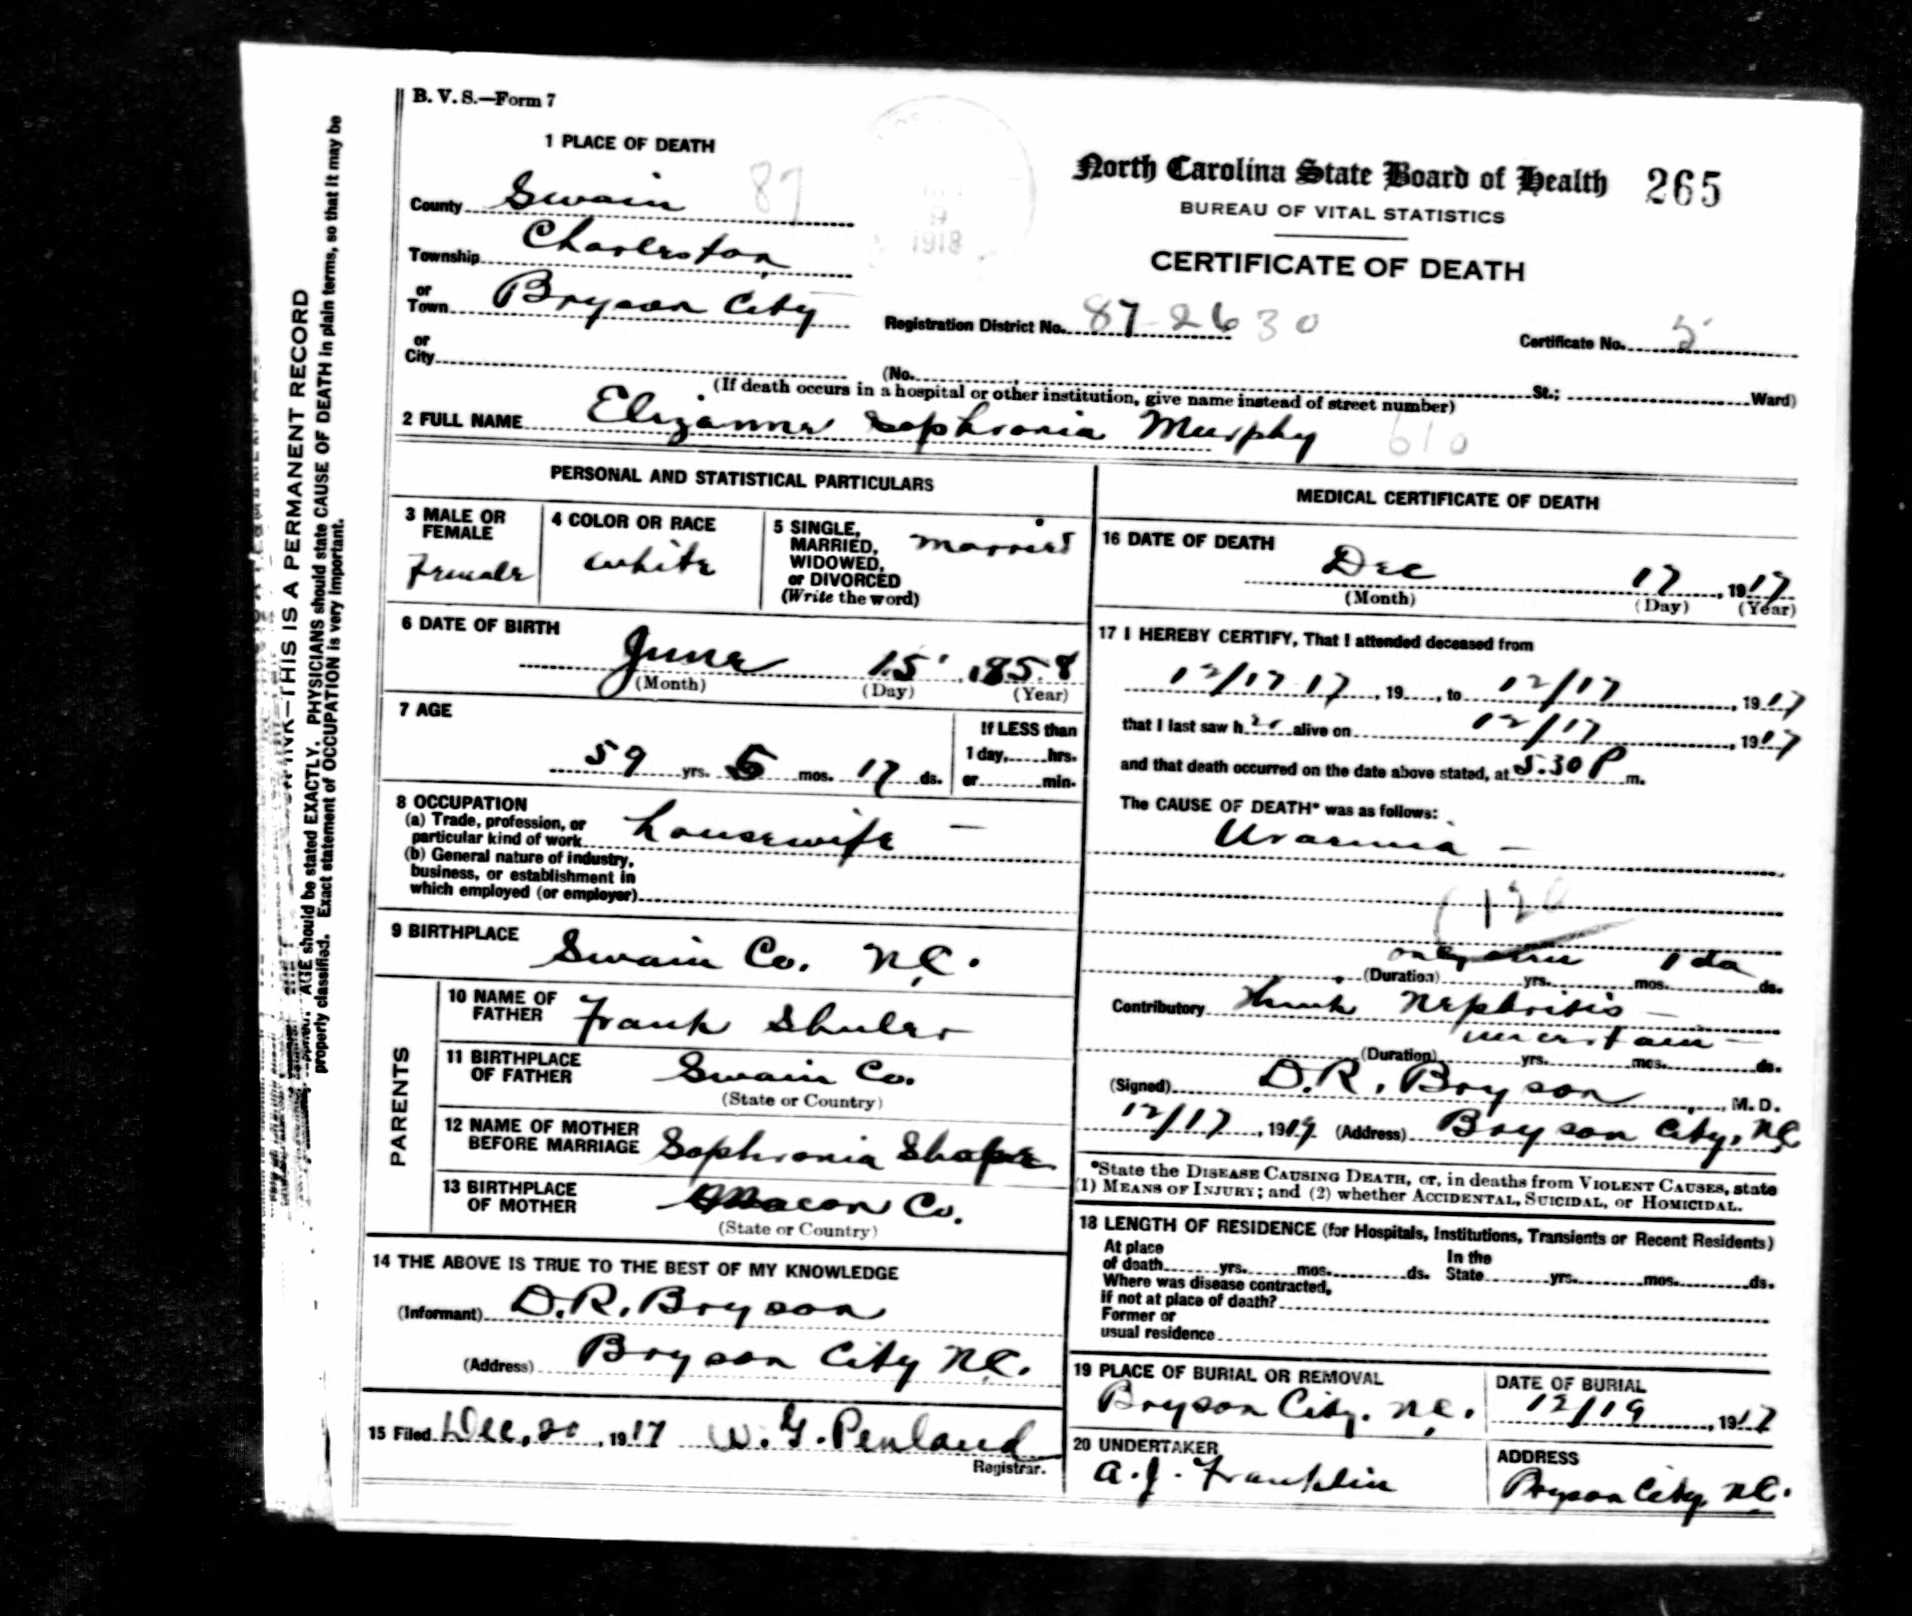 B. V. S.—Form 7
1 PLACE OF DEATH
North Carolina State Board of Health 265
BUREAU OF VITAL STATISTICS
CERTIFICATE OF DEATH
1918
County Swain 87
Township Charleston
or Town Bryson City
Registration District No. 87-2630 Certificate No. 5
or City (No. St.; Ward)
(If death occurs in a hospital or other institution, give name instead of street number)
2 FULL NAME Elizanne Sophronia Murphy 610
PERSONAL AND STATISTICAL PARTICULARS
3 MALE OR FEMALE Female
4 COLOR OR RACE white
5 SINGLE, MARRIED, WIDOWED, or DIVORCED (Write the word) married
6 DATE OF BIRTH
June 15, 1858
(Month) (Day) (Year)
7 AGE
59 yrs. 5 mos. 17 ds.
If LESS than
1 day, hrs.
or min.
8 OCCUPATION
(a) Trade, profession, or
particular kind of work housewife —
(b) General nature of industry,
business, or establishment in
which employed (or employer)
9 BIRTHPLACE Swain Co. N.C.
PARENTS
10 NAME OF FATHER Frank Shuler
11 BIRTHPLACE OF FATHER Swain Co.
(State or Country)
12 NAME OF MOTHER BEFORE MARRIAGE Sophronia
13 BIRTHPLACE OF MOTHER Macon Co.
(State or Country)
14 THE ABOVE IS TRUE TO THE BEST OF MY KNOWLEDGE
(Informant) D.R. Bryson
(Address) Bryson City N.C.
15 Filed Dec. 20, 1917 W. G. Penland
Registrar.
MEDICAL CERTIFICATE OF DEATH
16 DATE OF DEATH
Dec 17, 1917
(Month) (Day) (Year)
17 I HEREBY CERTIFY, That I attended deceased from
12/17 17, 19, to 12/17, 1917
that I last saw her alive on 12/17, 1917
and that death occurred on the date above stated, at 5.30 P m.
The CAUSE OF DEATH* was as follows:
Uraemia —
(120
1 da
(Duration) yrs. mos. ds.
Contributory Nephritis —
uncertain —
(Duration) yrs. mos. ds.
(Signed) D.R. Bryson, M. D.
12/17, 1919 (Address) Bryson City, NC
*State the DISEASE CAUSING DEATH, or, in deaths from VIOLENT CAUSES, state
(1) MEANS OF INJURY; and (2) whether ACCIDENTAL, SUICIDAL, or HOMICIDAL.
18 LENGTH OF RESIDENCE (for Hospitals, Institutions, Transients or Recent Residents)
At place of death yrs. mos. ds. In the State yrs. mos. ds.
Where was disease contracted,
if not at place of death?
Former or
usual residence
19 PLACE OF BURIAL OR REMOVAL
Bryson City, N.C.
DATE OF BURIAL
12/19, 1917
20 UNDERTAKER
A. J. Franklin
ADDRESS
Bryson City, N.C.
INK—THIS IS A PERMANENT RECORD
AGE should be stated EXACTLY. PHYSICIANS should state CAUSE OF DEATH in plain terms, so that it may be
properly classified. Exact statement of OCCUPATION is very important.